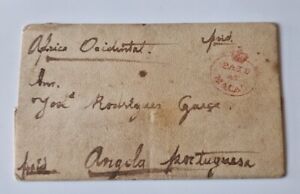 África Occidental. paid.
PAID
AT
MALA
Am.
José Rodrigues
paid Angola Portuguesa